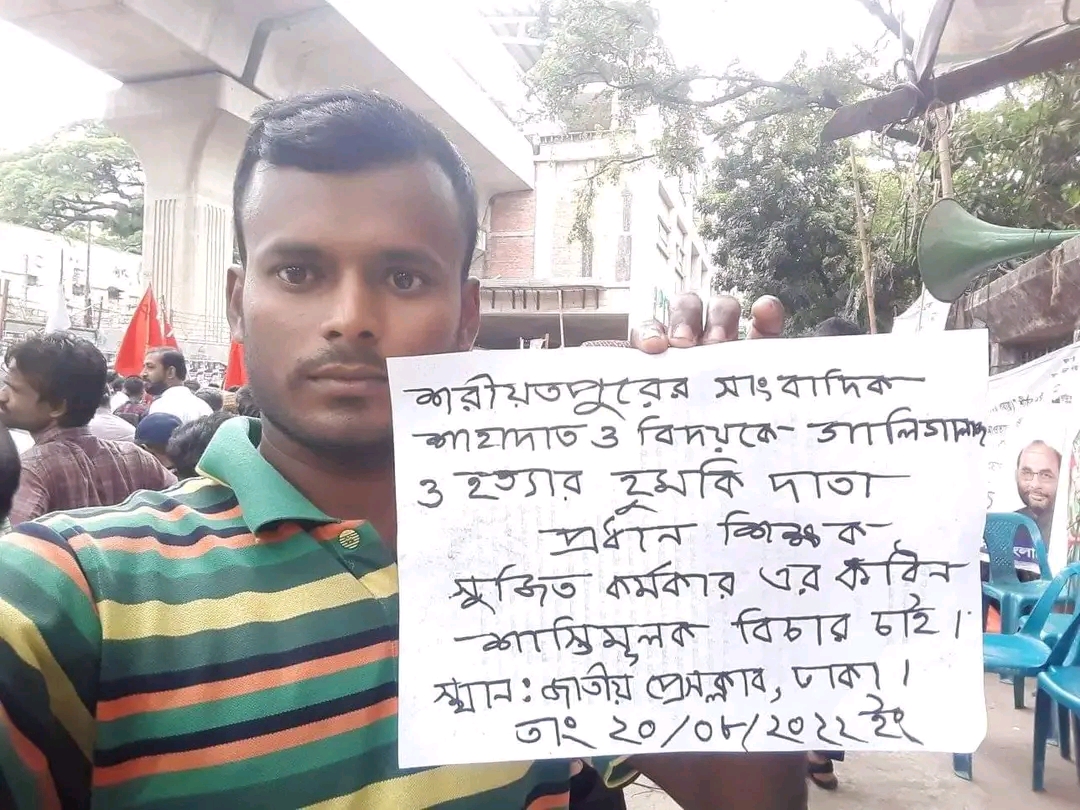 শরীয়তপুরের সাংবাদিক
শাহাদাত ও বিদয়কে গালিগালাজ
ও হত্যার হুমকি দাতা
প্রধান শিক্ষক
সুজিত কর্মকার এর কঠিন
শাস্তিমূলক বিচার চাই।
স্থান: জাতীয় প্রেসক্লাব, ঢাকা।
তাং ২০/০৮/২০২২ ইং